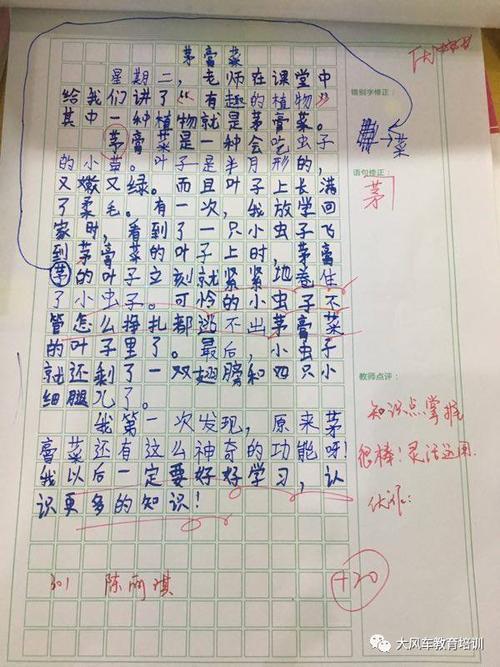 茅膏菜
星期二，老师在课堂中
给我们讲了"有趣的植物"
其中一种植物就是茅膏菜。
茅膏菜是一种会吃虫子
的小草。叶子是半月形的，
又嫩又绿。而且叶子上长满
了柔毛。有一次，我放学回
家时，看到了一只小虫子飞
到茅膏菜的叶子上时，茅膏
茅的叶子立刻就紧紧地卷住
了小虫子。可怜的小虫子不
管怎么挣扎都逃不出茅膏菜
的叶子里了。最后，小虫子
就还剩了一双翅膀和四只小
细腿儿了。
我第一次发现，原来茅
膏菜还有这么神奇的功能呀！
我以后一定要好好学习，认
识更多的知识！
301 陈
+20
错别字修正：
→菜
语句修正：
茅
教师点评：
知识点掌握
很棒！灵活运用
优作
大风车教育培训